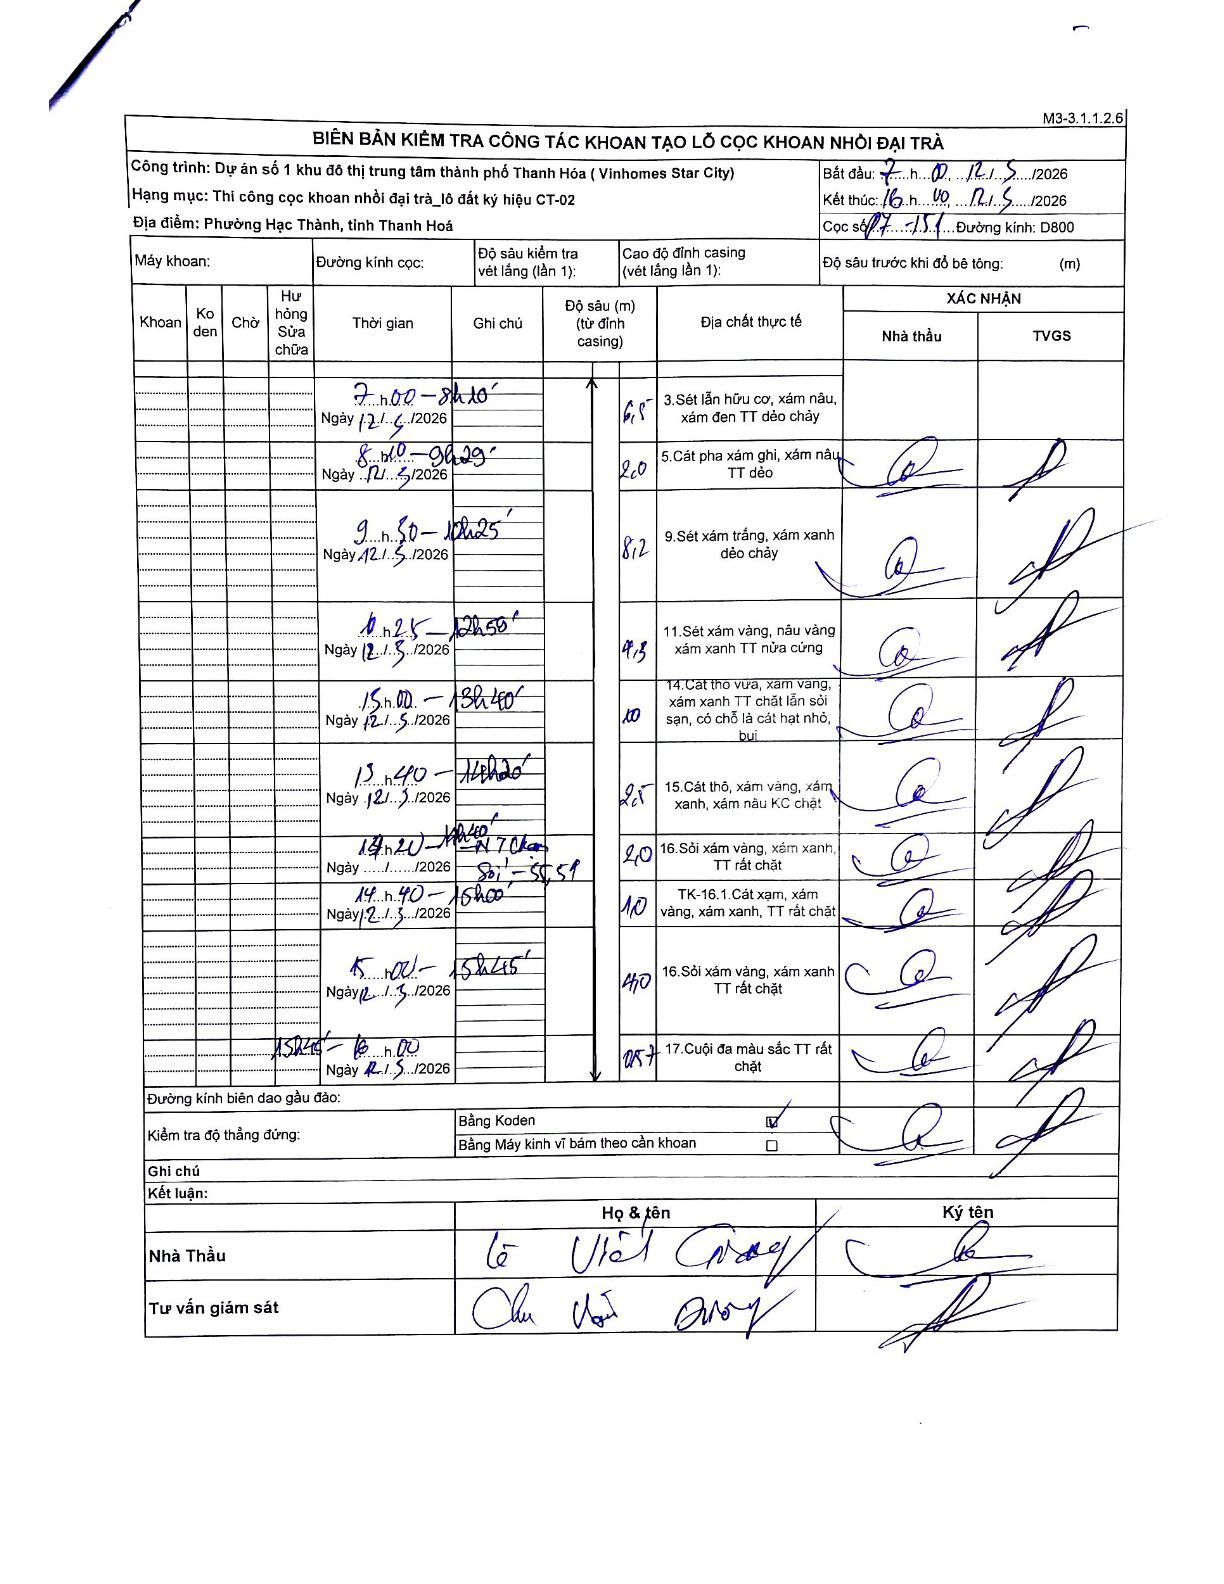 M3-3.1.1.2.6
BIÊN BẢN KIỂM TRA CÔNG TÁC KHOAN TẠO LỖ CỌC KHOAN NHỒI ĐẠI TRÀ
Công trình: Dự án số 1 khu đô thị trung tâm thành phố Thanh Hóa ( Vinhomes Star City)
Hạng mục: Thi công cọc khoan nhồi đại trà_lô đất ký hiệu CT-02
Địa điểm: Phường Hạc Thành, tỉnh Thanh Hoá
Bắt đầu: 7 h 00, 12/5/2026
Kết thúc: 16 h 00, 12/5/2026
Cọc số: -151 Đường kính: D800
Máy khoan:
Đường kính cọc:
Độ sâu kiểm tra
vét lắng (lần 1):
Cao độ đỉnh casing
(vét lắng lần 1):
Độ sâu trước khi đổ bê tông: (m)
Khoan
Ko
den
Chờ
Hư
hỏng
Sửa
chữa
Thời gian
Ghi chú
Độ sâu (m)
(từ đỉnh
casing)
Địa chất thực tế
XÁC NHẬN
Nhà thầu
TVGS
7 h 00 - 8h10'
Ngày 12/5/2026
6,5
3.Sét lẫn hữu cơ, xám nâu,
xám đen TT dẻo chảy
8 h 10 - 9h29'
Ngày 12/5/2026
2,0
5.Cát pha xám ghi, xám nâu
TT dẻo
9 h 30 - 10h25'
Ngày 12/5/2026
8,2
9.Sét xám trắng, xám xanh
dẻo chảy
10 h 25 - 12h50'
Ngày 12/5/2026
11.Sét xám vàng, nâu vàng
xám xanh TT nửa cứng
13 h 00 - 13h40'
Ngày 12/5/2026
10
14.Cát thô vừa, xám vàng,
xám xanh TT chặt lẫn sỏi
sạn, có chỗ là cát hạt nhỏ,
bụi
13 h 40 - 14h20'
Ngày 12/5/2026
2,5
15.Cát thô, xám vàng, xám
xanh, xám nâu KC chặt
14 h 20 - 14h40'
Ngày ...../....../2026
- NT Chạm
Sỏi - 55,59
2,0
16.Sỏi xám vàng, xám xanh,
TT rất chặt
14 h 40 - 15h00'
Ngày 12/5/2026
1,0
TK-16.1.Cát xạm, xám
vàng, xám xanh, TT rất chặt
15 h 00 - 15h45'
Ngày 12/5/2026
4,0
16.Sỏi xám vàng, xám xanh
TT rất chặt
15h45' - 16 h 00
Ngày 12/5/2026
17.Cuội đa màu sắc TT rất
chặt
Đường kính biên dao gầu đào:
Kiểm tra độ thẳng đứng:
Bằng Koden ☑
Bằng Máy kinh vĩ bám theo cần khoan ☐
Ghi chú
Kết luận:
Họ & tên
Ký tên
Nhà Thầu
Lê Viết
Tư vấn giám sát
Chu Dương